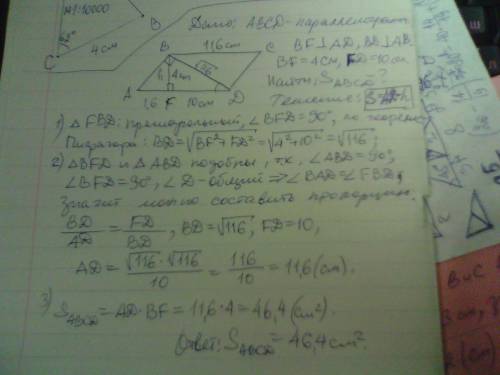 М1:10000
В
С
4 см
Дано: ABCD-параллелограмм
BF⊥AD, BD⊥AB.
BF=4см, FD=10см.
Найти: S ABCD?
Решение: S=a·h
B 11,6 см C
h 4см √116
A 1,6 F 10см D
1) △FBD: прямоугольный, ∠BFD=90°, по теореме
Пифагора: BD=√BF²+FD²=√4²+10²=√116;
2) △BFD и △ABD подобны, т.к. ∠ABD=90°,
∠BFD=90°, ∠D-общий ⇒∠BAD=∠FBD,
Значит можно составить пропорцию.
BD/AD = FD/BD, BD=√116, FD=10,
AD= √116·√116/10 = 116/10 = 11,6 (см).
3) S ABCD=AD·BF=11,6·4=46,4(см²).
Ответ: S ABCD=46,4см².